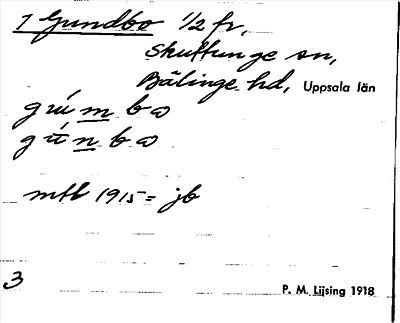 7 Gundbo 1/2 fr,
Skuttunge sn,
Bälinge hd, Uppsala län
gúmbω
gúnbω
mtl 1915 = jb
3
P. M. Lijsing 1918